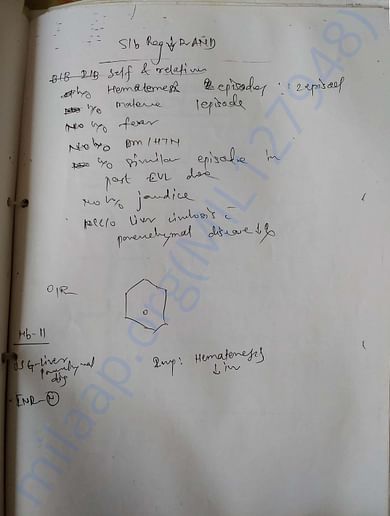 S/b Reg ↓ R AND
B/B S/B self & relative
h/o Hematemesis 2 episodes : 2 episodes
h/o malena 1 episode
No h/o fever
No h/o DM/HTN
h/o similar episode in
past EVL done
No h/o jaundice
k/c/o liver cirrhosis c̄
parenchymal disease
O/E
Hb-11
USG-Liver
parenchymal
dis
INR-N
Imp: Hematemesis
milaap.org(MIL127948)